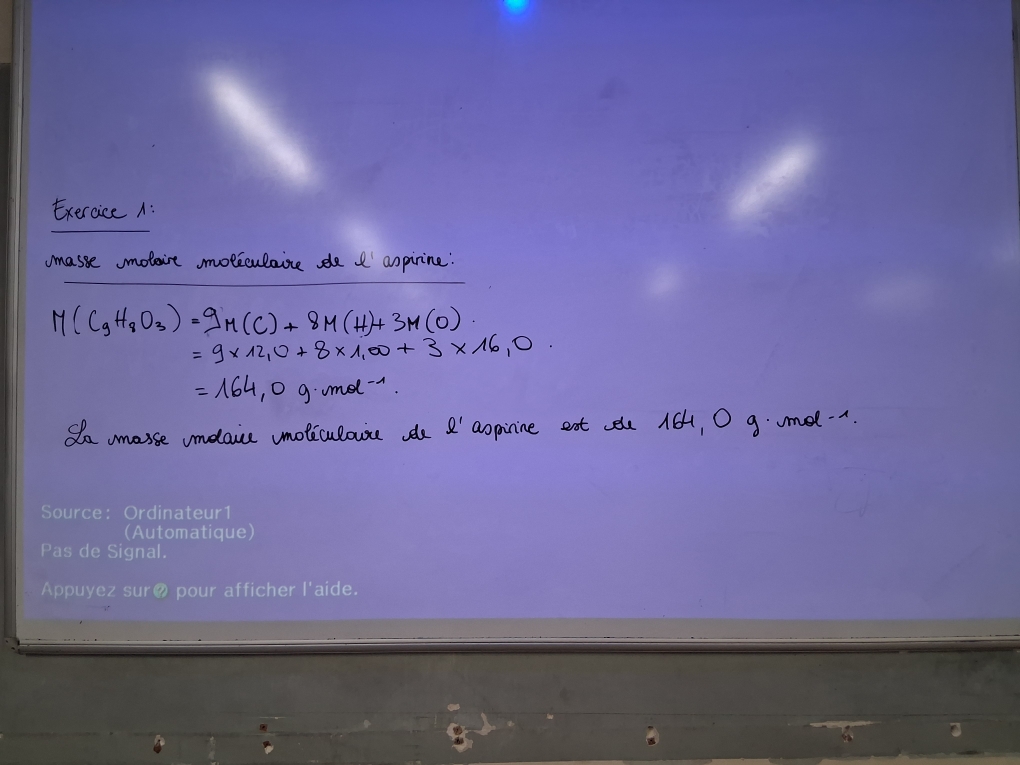 Exercice 1:
masse molaire moléculaire de l'aspirine:
M(C₉H₈O₃) = 9M(C) + 8M(H) + 3M(O).
= 9 × 12,0 + 8 × 1,00 + 3 × 16,0.
= 164,0 g·mol⁻¹.
La masse molaire moléculaire de l'aspirine est de 164,0 g·mol⁻¹.
Source: Ordinateur1
(Automatique)
Pas de Signal.
Appuyez sur ? pour afficher l'aide.